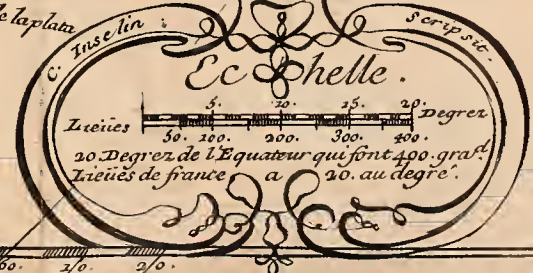 de laplata
C. Inselin Scripsit.
Echelle.
5. 10. 15. 20.
Lieües Degrez
50. 100. 200. 300. 400.
20. Degrez de l'Equateur qui font 400. grad.
Lieües de france a 20. au degré.